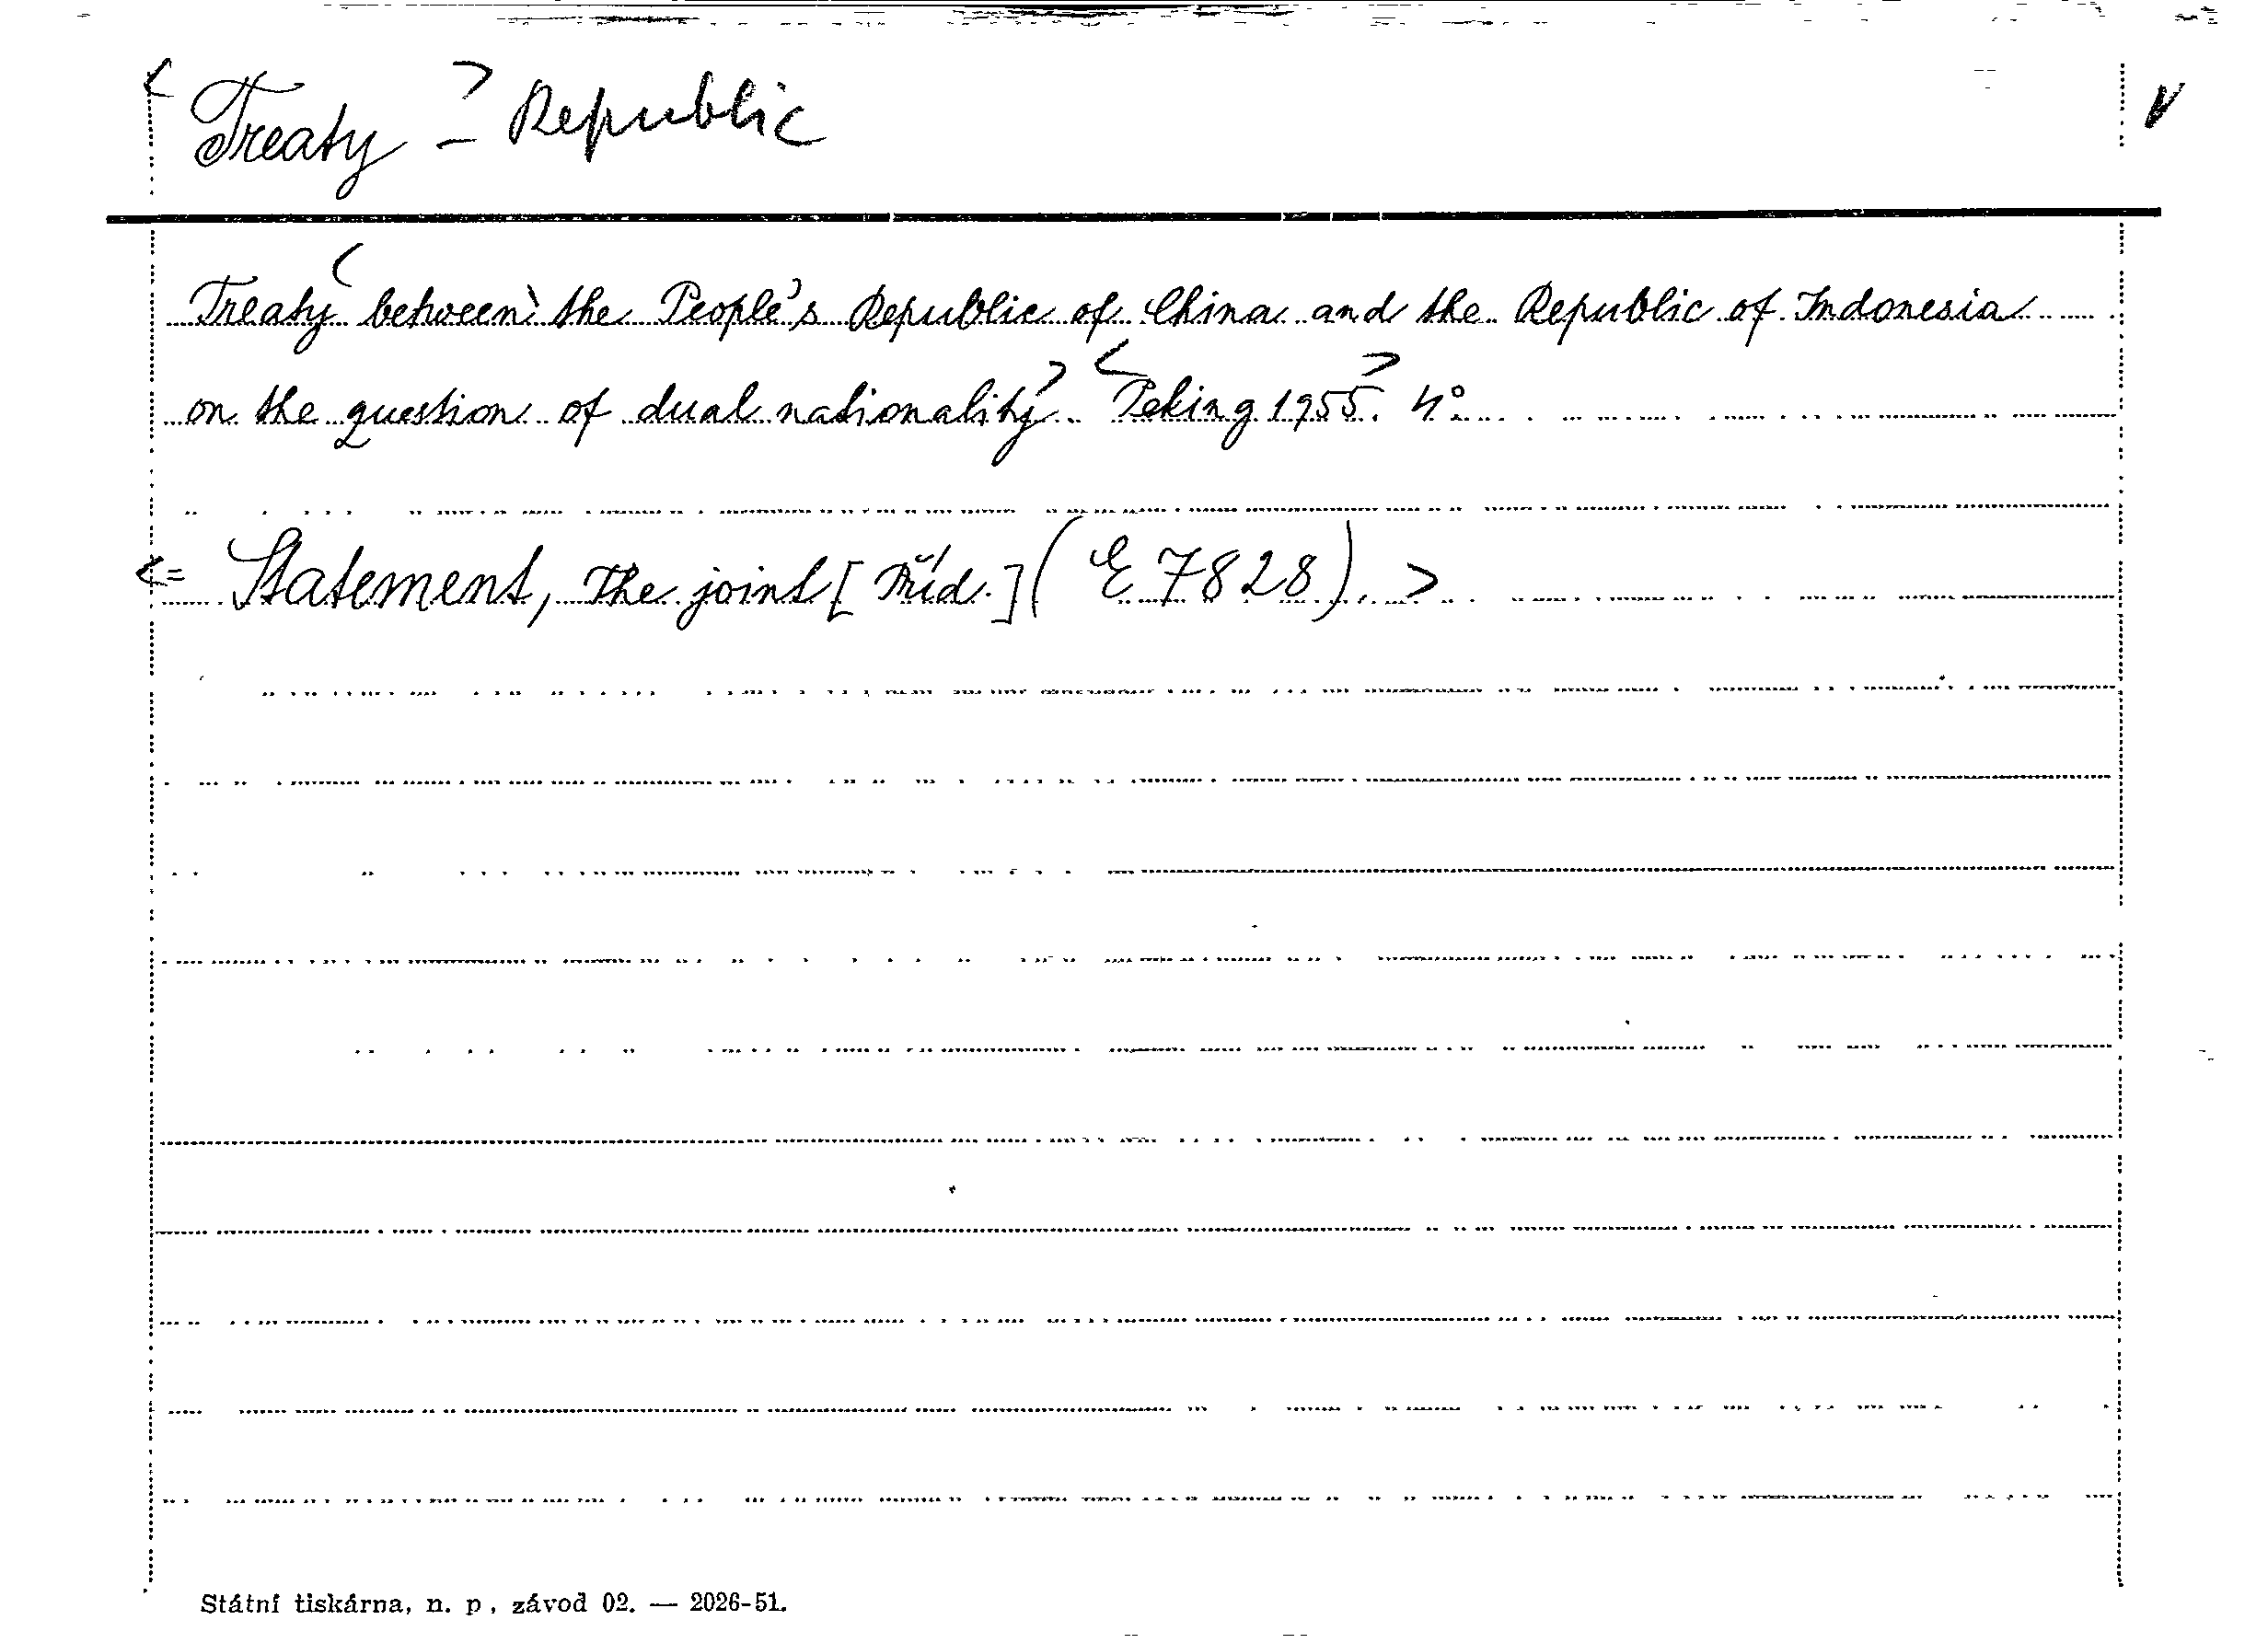 < Treaty > - Republic V
Treaty < between the People's Republic of China and the Republic of Indonesia
on the question of dual nationality >. < Peking 1955 >. 4°.
<= Statement, The joint [Příd.] (E 7828). >
Státní tiskárna, n. p., závod 02. — 2026-51.